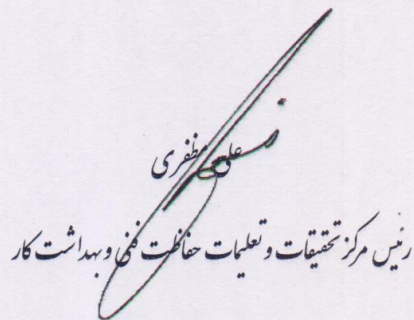 علی مظفری
رئیس مرکز تحقیقات و تعلیمات حفاظت فنی و بهداشت کار